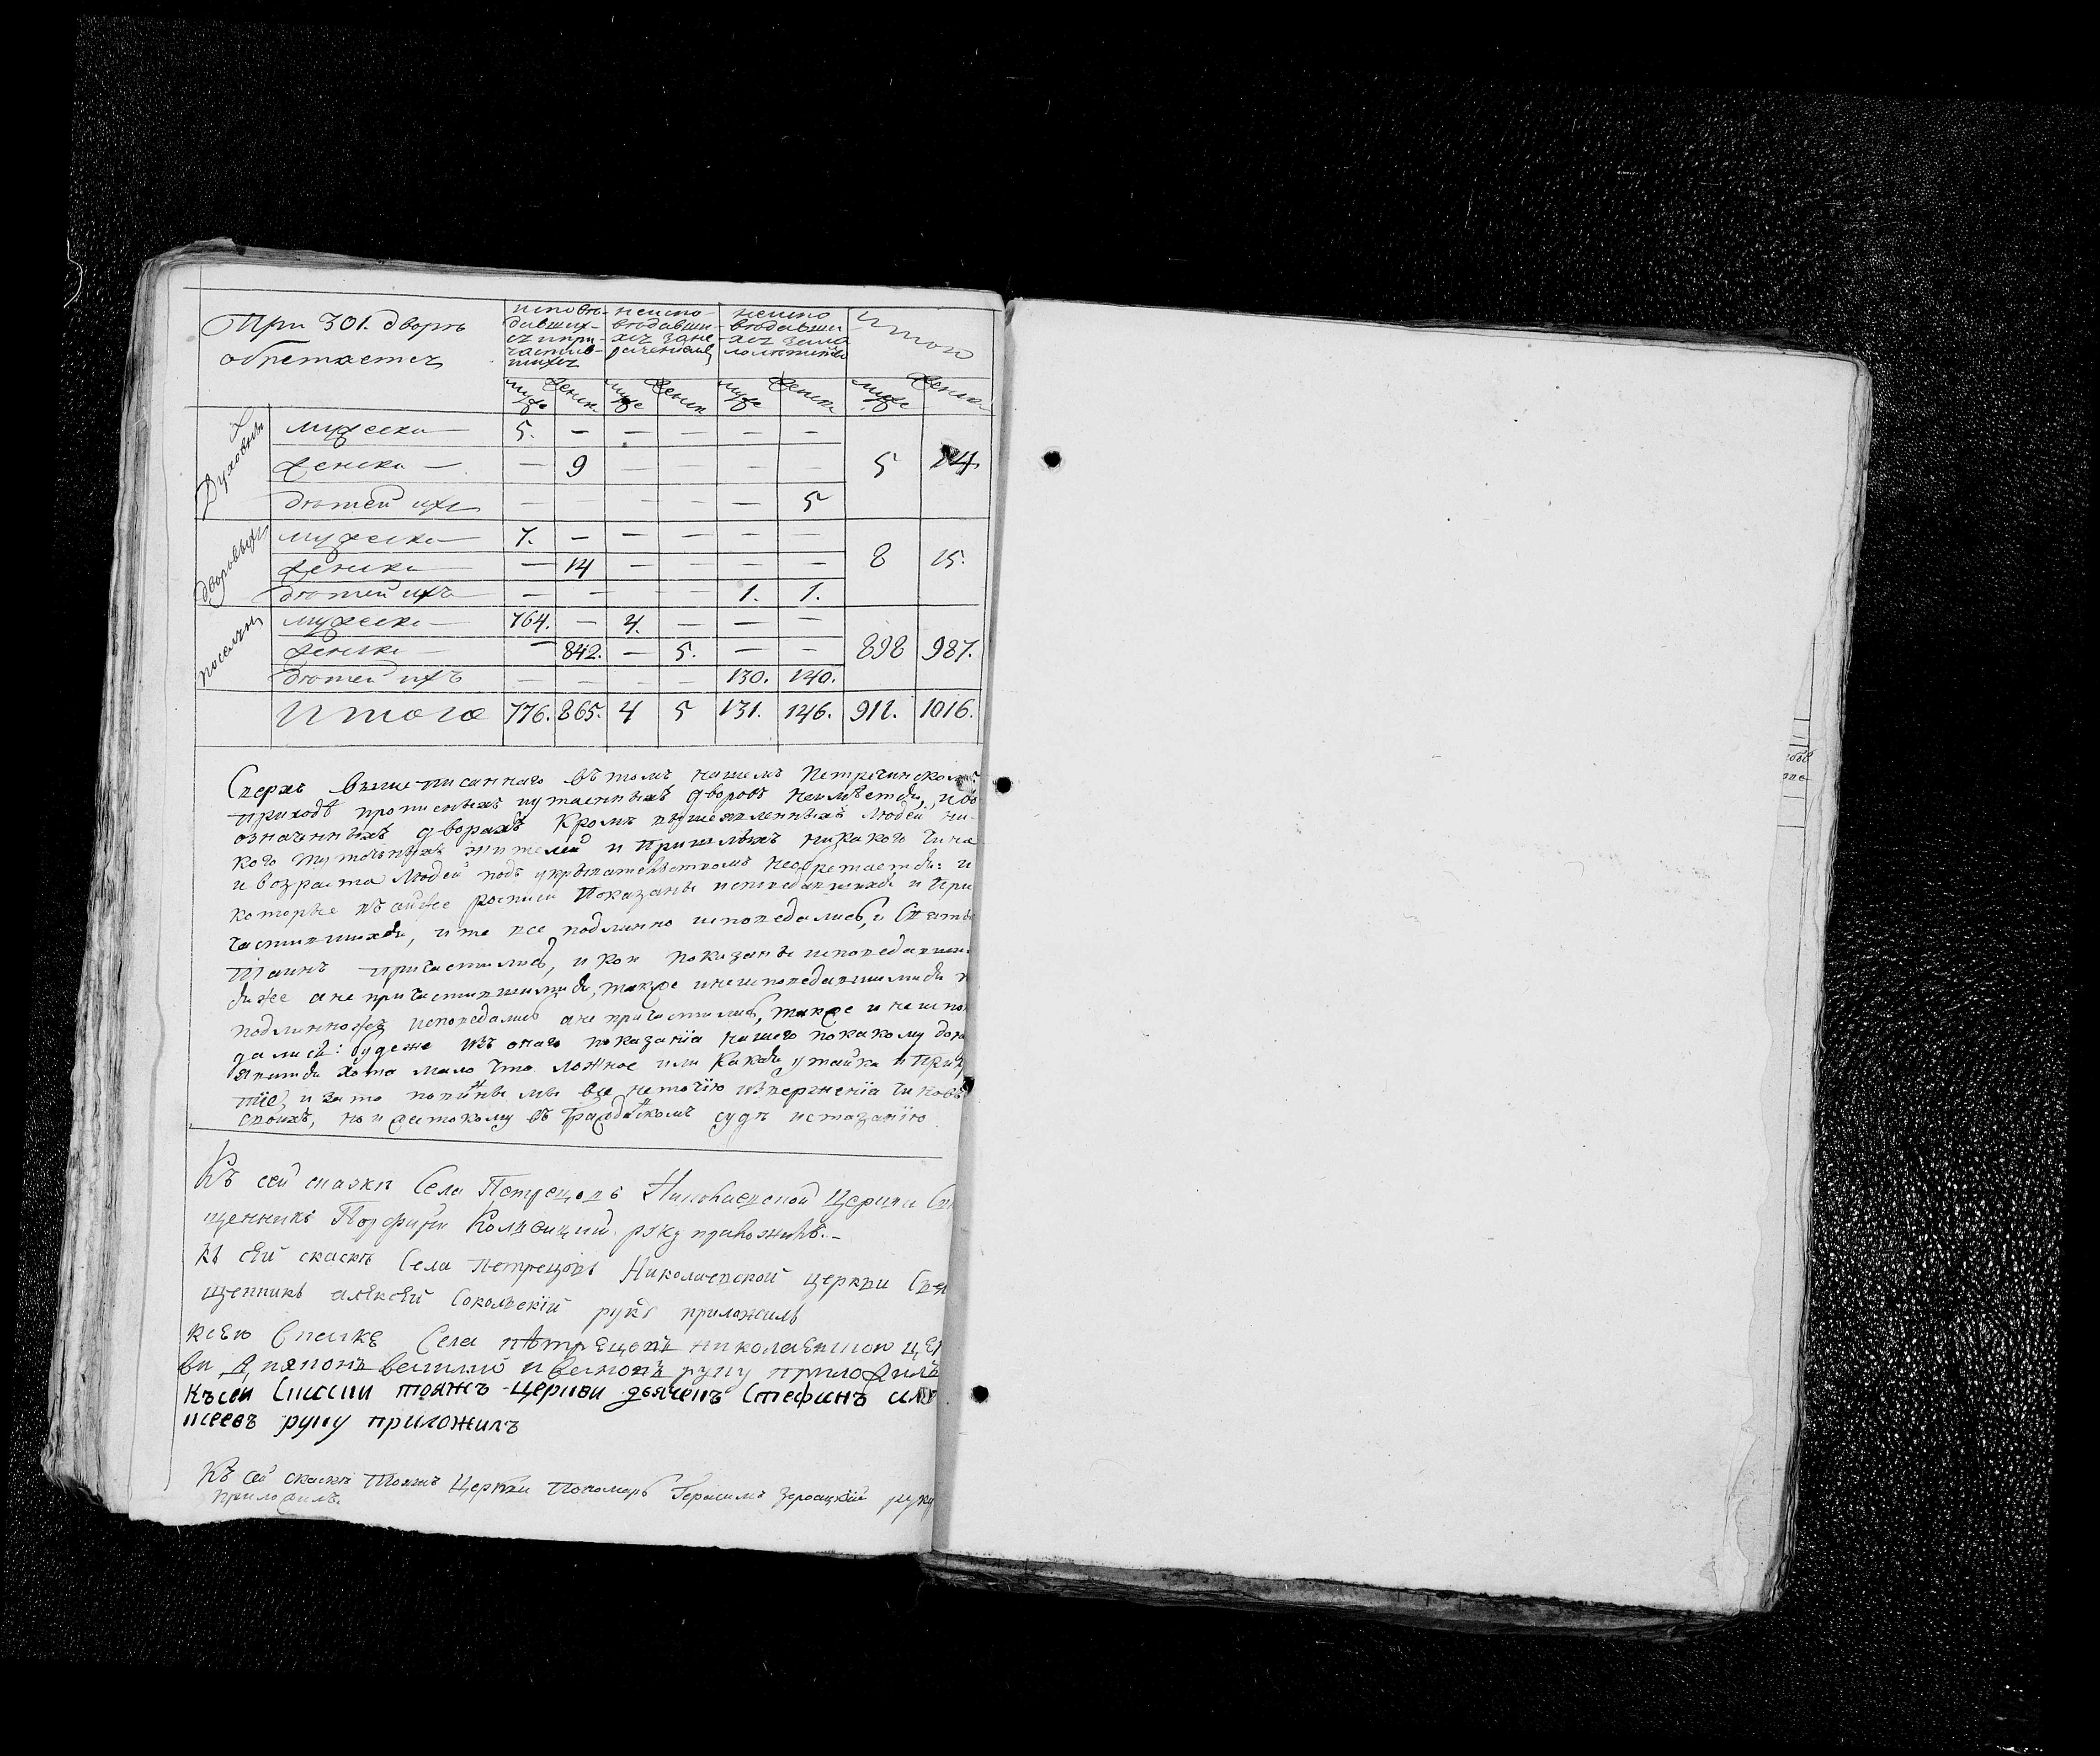 При 301. дворѣ
обретаетсѧ
исповѣ-
давших-
сѧ и при-
частив-
шихсѧ
неиспо-
вѣдавши-
хсѧ за не
раченіемъ
неиспо
вѣдавши-
хсѧ за ма
лолѣтствомъ
Итого
муже женск муже женск муже женска муже женска
Духовныхъ
мужеска — 5. — — — — —
женска — — 9 — — — — 5 14
дѣтей ихъ — — — — — 5
дворовыхъ
мужеска — 7. — — — — —
женска — — 14 — — — — 8 15.
дѣтей ихъ — — — — 1. 1.
поселянъ
мужеска — 764. — 4. — — —
женска — — 842. — 5. — — 898 987.
дѣтей ихъ — — — — 130. 140.
Итого 776. 865. 4 5 131. 146. 911. 1016.
Сверхъ вышеписаннаго въ томъ нашемъ Петречинском
приходѣ прописныхъ и утаенныхъ дворовъ неимѣется, и во
означенныхъ дворахъ кромѣ вышеявленныхъ людей ни-
кого тутошныхъ жителей и пришлыхъ никакого чина
и возраста людей подъ укрывательствомъ необретается: и
которые въ оной росписи показаны исповедавшихся и при
частившихся, и те все подлинно исповедались, и святы
таинъ причастились, и кои показаны исповедавши
ся же а не причастившимися, также и неисповедавшимися
подлинно же исповедались а не причастились, также и неиспо
дались: будеже изъ онаго показанія нашего по какому дон
явится хотя мало что ложное или какая утайка и прик
тіе, и за то повинны мы все не точію изверженія чиновъ
своихъ, но и жестокому въ гражданскомъ судѣ истязанію
Къ сей сказки Села Петрецовъ Николаевской Церкви Свя
щенникъ Порфирій руку приложилъ. –
къ сей скаскѣ Села Петрецовъ Николаевской церкви Свя
щенникъ алексѣй Сокольскій руку приложилъ
ксею Скаске Села петрецовъ николаевской цер
ви дияконъ василий ивановъ руку приложилъ
Къ сеи Скаски тояжъ церкви дьячекъ Стефанъ але
ксеевъ руку приложилъ
Къ сей скаскѣ тояжъ Церкви Пономарь Герасимъ руку
приложилъ